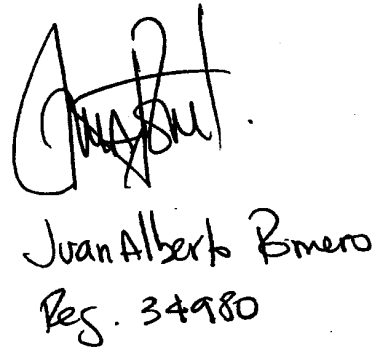 Juan Alberto Romero
Reg. 34980